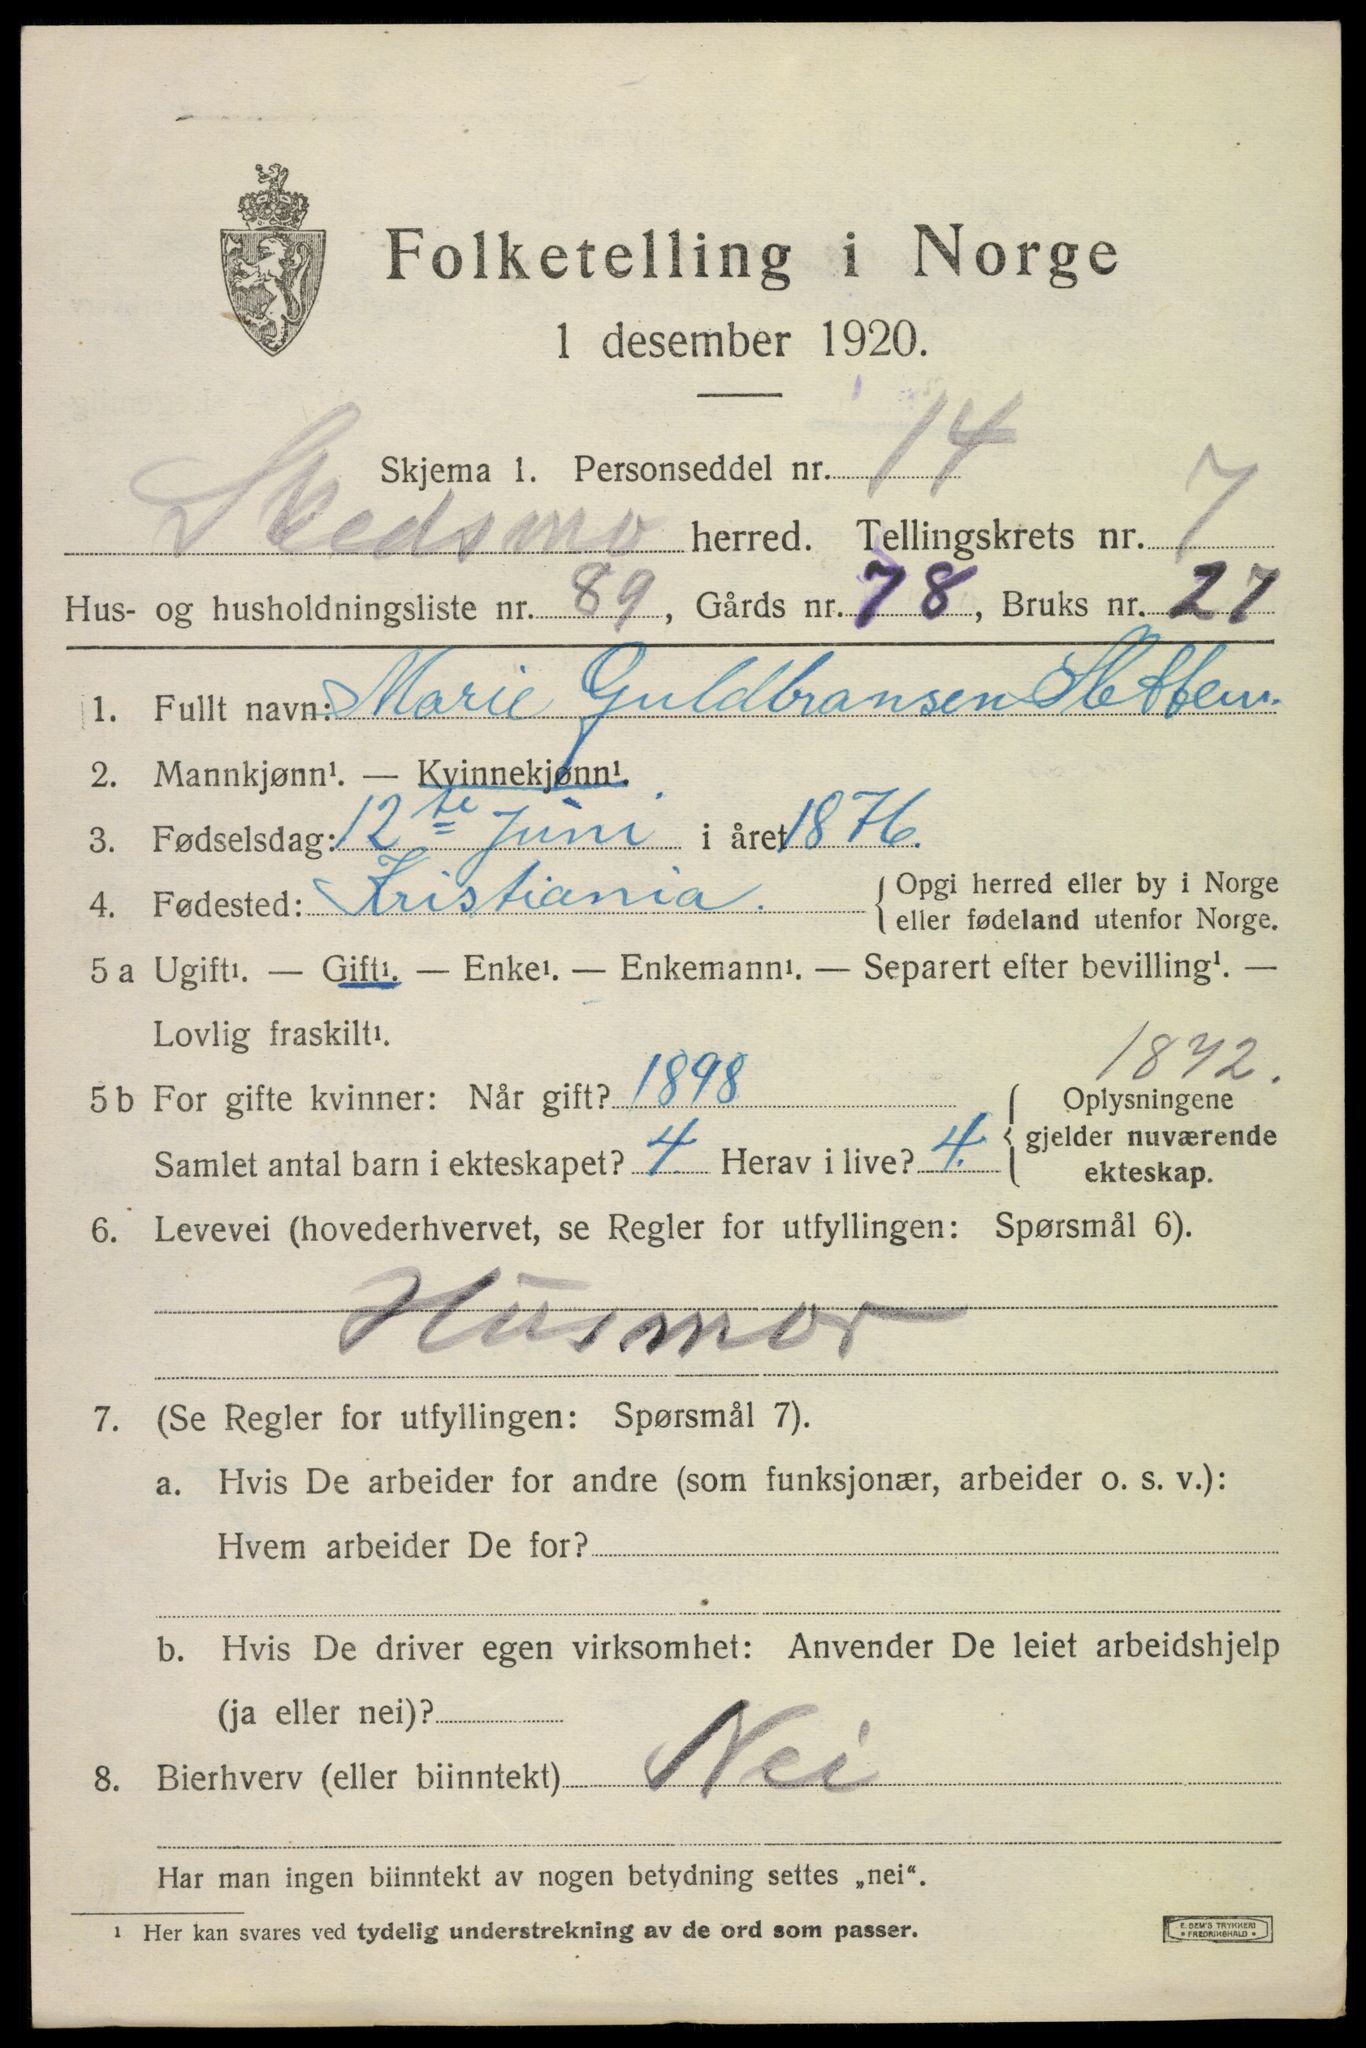 Folketelling i Norge
1 desember 1920.
Skjema 1. Personseddel nr. 14
Skedsmo herred. Tellingskrets nr. 7
Hus- og husholdningsliste nr. 89, Gårds nr. 78, Bruks nr. 27
1. Fullt navn: Marie Guldbransen
2. Mannkjønn¹. — Kvinnekjønn¹.
3. Fødselsdag: 12te Juni i året 1876.
4. Fødested: Kristiania. { Opgi herred eller by i Norge
eller fødeland utenfor Norge.
5 a Ugift¹. — Gift¹. — Enke¹. — Enkemann¹. — Separert efter bevilling¹. —
Lovlig fraskilt¹.
1842.
5 b For gifte kvinner: Når gift? 1898
Samlet antal barn i ekteskapet? 4. Herav i live? 4.
{ Oplysningene
gjelder nuværende
ekteskap.
6. Levevei (hovederhvervet, se Regler for utfyllingen: Spørsmål 6).
Husmor
7. (Se Regler for utfyllingen: Spørsmål 7).
a. Hvis De arbeider for andre (som funksjonær, arbeider o. s. v.):
Hvem arbeider De for?
b. Hvis De driver egen virksomhet: Anvender De leiet arbeidshjelp
(ja eller nei)?
8. Bierhverv (eller biinntekt) Nei
Har man ingen biinntekt av nogen betydning settes „nei“.
¹ Her kan svares ved tydelig understrekning av de ord som passer.
E. SEM'S TRYKKERI
* FREDRIKSHALD *